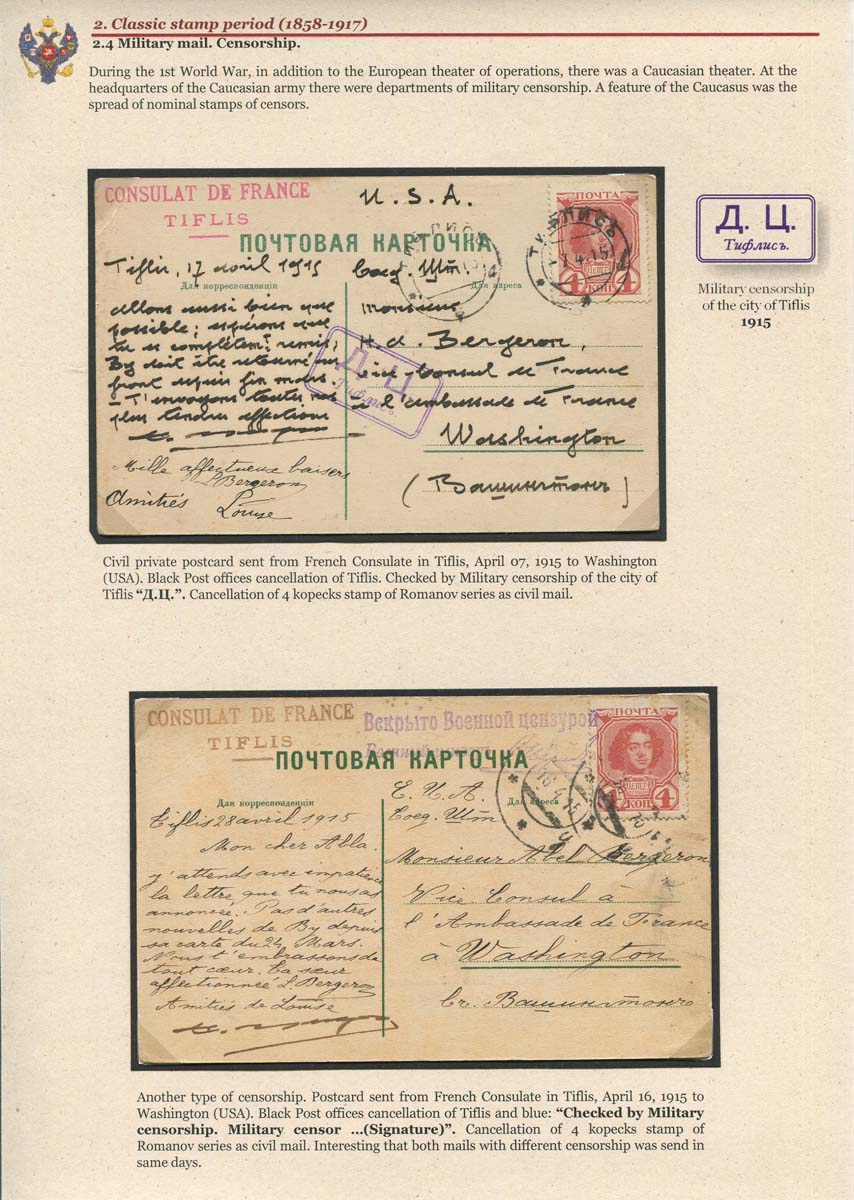 2. Classic stamp period (1858-1917)
2.4 Military mail. Censorship.
During the 1st World War, in addition to the European theater of operations, there was a Caucasian theater. At the
headquarters of the Caucasian army there were departments of military censorship. A feature of the Caucasus was the
spread of nominal stamps of censors.
CONSULAT DE FRANCE
TIFLIS
U.S.A.
ПОЧТА
4 4
КОП
ПОЧТОВАЯ КАРТОЧКА
Tiflis, 17 avril 1915
Соед. Шт.
Для корреспонденціи
Для адреса
allons aussi bien que
possible; espérons que
tu es complètem! remis,
By doit être retourné au
front depuis fin mars.
- T'envoyons toutes nos
plus tendres affections
Mille affectueux baisers
L Bergeron
Amitiés
Louise
Monsieur
H. A. Bergeron,
Vice-Consul de France
à l'ambassade de France
Washington
(Вашингтонъ)
Д. Ц.
Тифлисъ.
ТИФЛИСЪ
Д. Ц.
Тифлисъ.
Military censorship
of the city of Tiflis
1915
Civil private postcard sent from French Consulate in Tiflis, April 07, 1915 to Washington
(USA). Black Post offices cancellation of Tiflis. Checked by Military censorship of the city of
Tiflis “Д.Ц.”. Cancellation of 4 kopecks stamp of Romanov series as civil mail.
CONSULAT DE FRANCE
TIFLIS
Вскрыто Военной цензурой
ПОЧТА
4 4
КОП
ПОЧТОВАЯ КАРТОЧКА
16.4.15
Для корреспонденціи
Для адреса
Tiflis 28 avril 1915
Mon cher Abla.
j'attends avec impatience
la lettre que tu nous as
annoncée. Pas d'autres
nouvelles de By depuis
sa carte du 24 Mars.
Nous t'embrassons de
tout cœur. ta sœur
affectionnée L Bergeron
Amitiés de Louise
Соед. Шт
Monsieur Abel Bergeron
Vice Consul à
l'Ambassade de France
à Washington
Вашингтонъ
Another type of censorship. Postcard sent from French Consulate in Tiflis, April 16, 1915 to
Washington (USA). Black Post offices cancellation of Tiflis and blue: “Checked by Military
censorship. Military censor ...(Signature)”. Cancellation of 4 kopecks stamp of
Romanov series as civil mail. Interesting that both mails with different censorship was send in
same days.